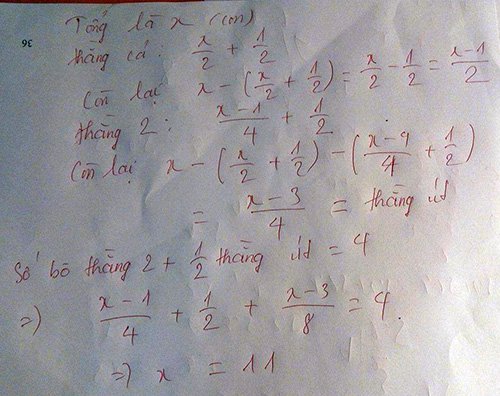 Tổng là x (con)
36
thằng cả: x/2 + 1/2
Còn lại x - (x/2 + 1/2) = x/2 - 1/2 = x-1/2
thằng 2: x-1/4 + 1/2
Còn lại x - (x/2 + 1/2) - (x-1/4 + 1/2)
= x-3/4 = thằng út
Số bò thằng 2 + 1/2 thằng út = 4
=> x-1/4 + 1/2 + x-3/8 = 4.
=> x = 11